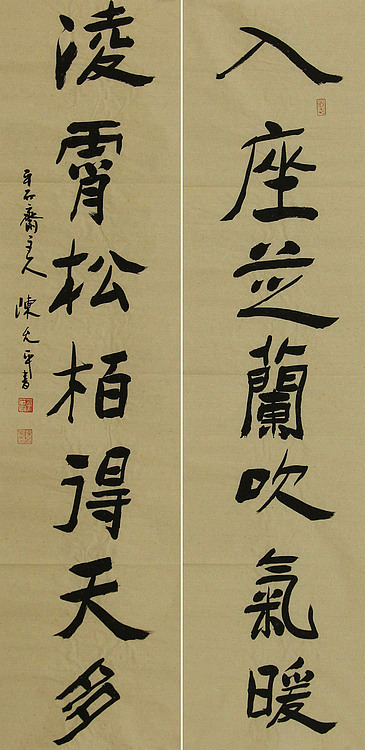 入座芝蘭吹氣暖
淩霄松柏得天多
平石齋主人 陳允平書